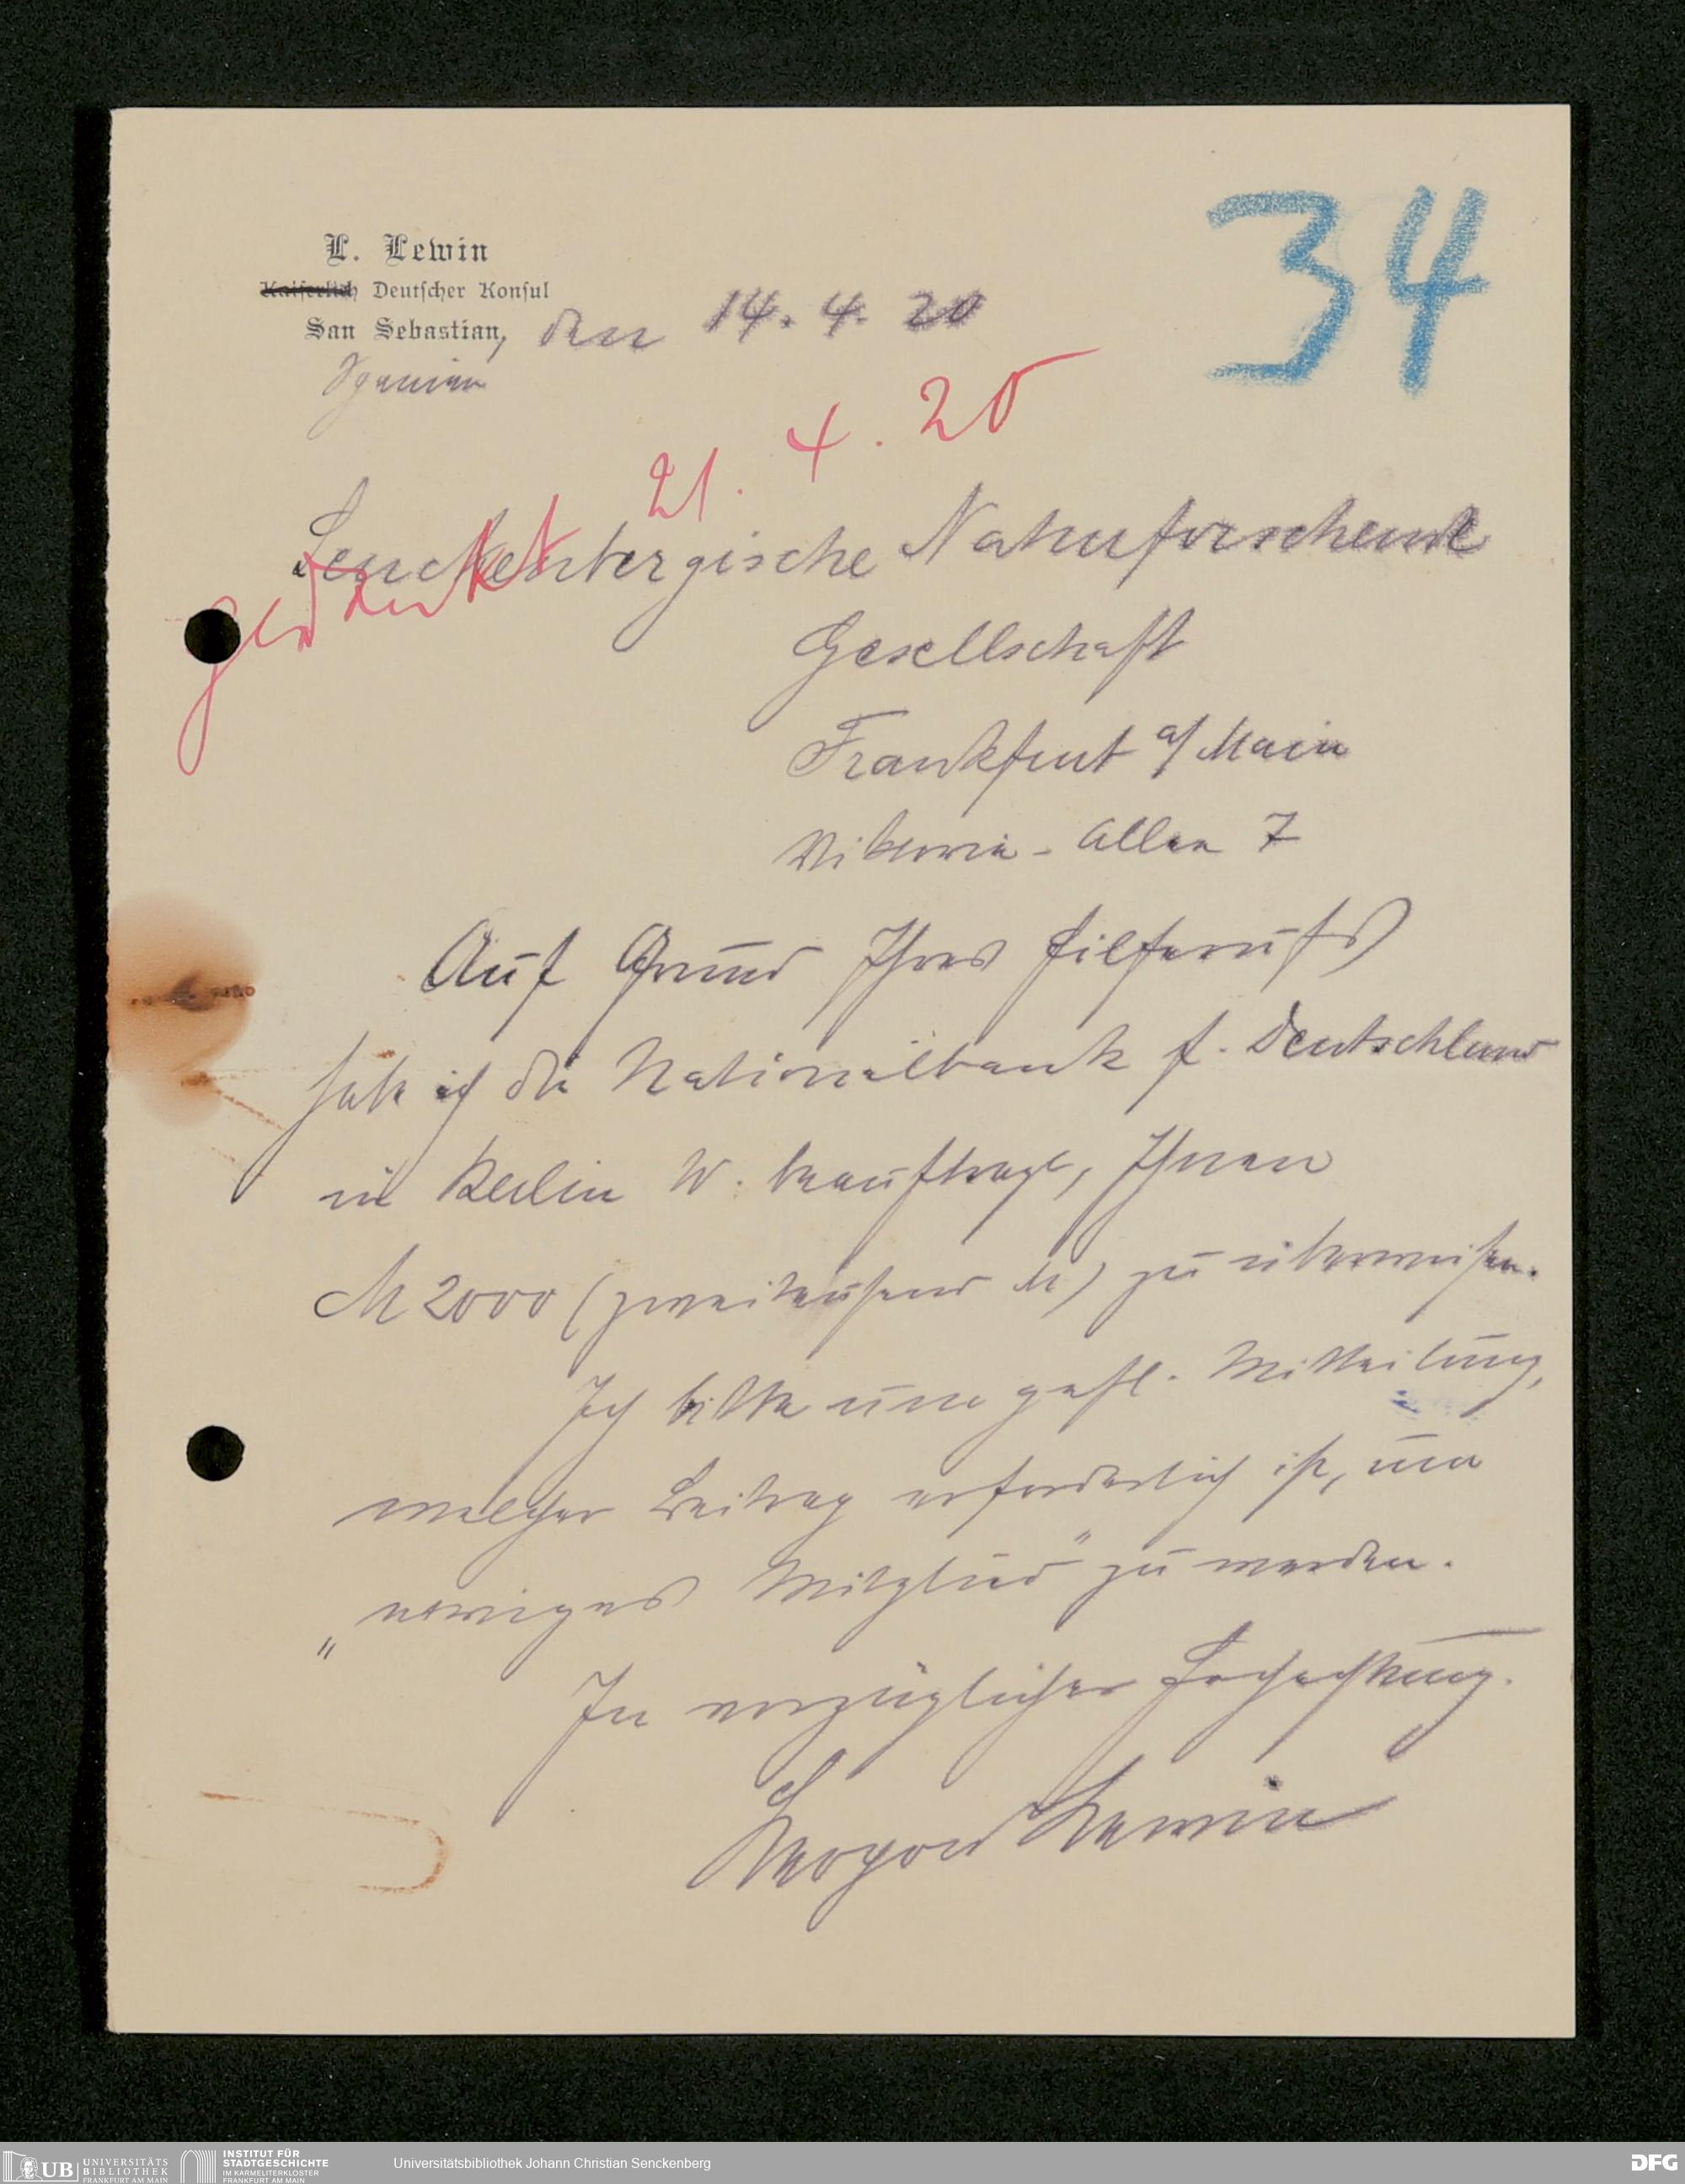 34
L. Lewin
Kaiserlich Deutscher Konsul
San Sebastian, den 14. 4. 20
Spanien
21. 4. 20
gedankt
Senckenbergische Naturforschende
Gesellschaft
Frankfurt a/Main
Viktoria-Allee 7
Auf Grund Ihres Hilferufs
habe ich die Nationalbank f. Deutschland
in Berlin W. beauftragt, Ihnen
M 2000 (zweitausend M) zu überweisen.
Ich bitte um gefl. Mitteilung,
welcher Beitrag erforderlich ist, um
„ewiges Mitglied" zu werden.
In vorzüglicher Hochachtung.
Lewin
UB UNIVERSITÄTS
BIBLIOTHEK
FRANKFURT AM MAIN
INSTITUT FÜR
STADTGESCHICHTE
IM KARMELITERKLOSTER
FRANKFURT AM MAIN
Universitätsbibliothek Johann Christian Senckenberg
DFG